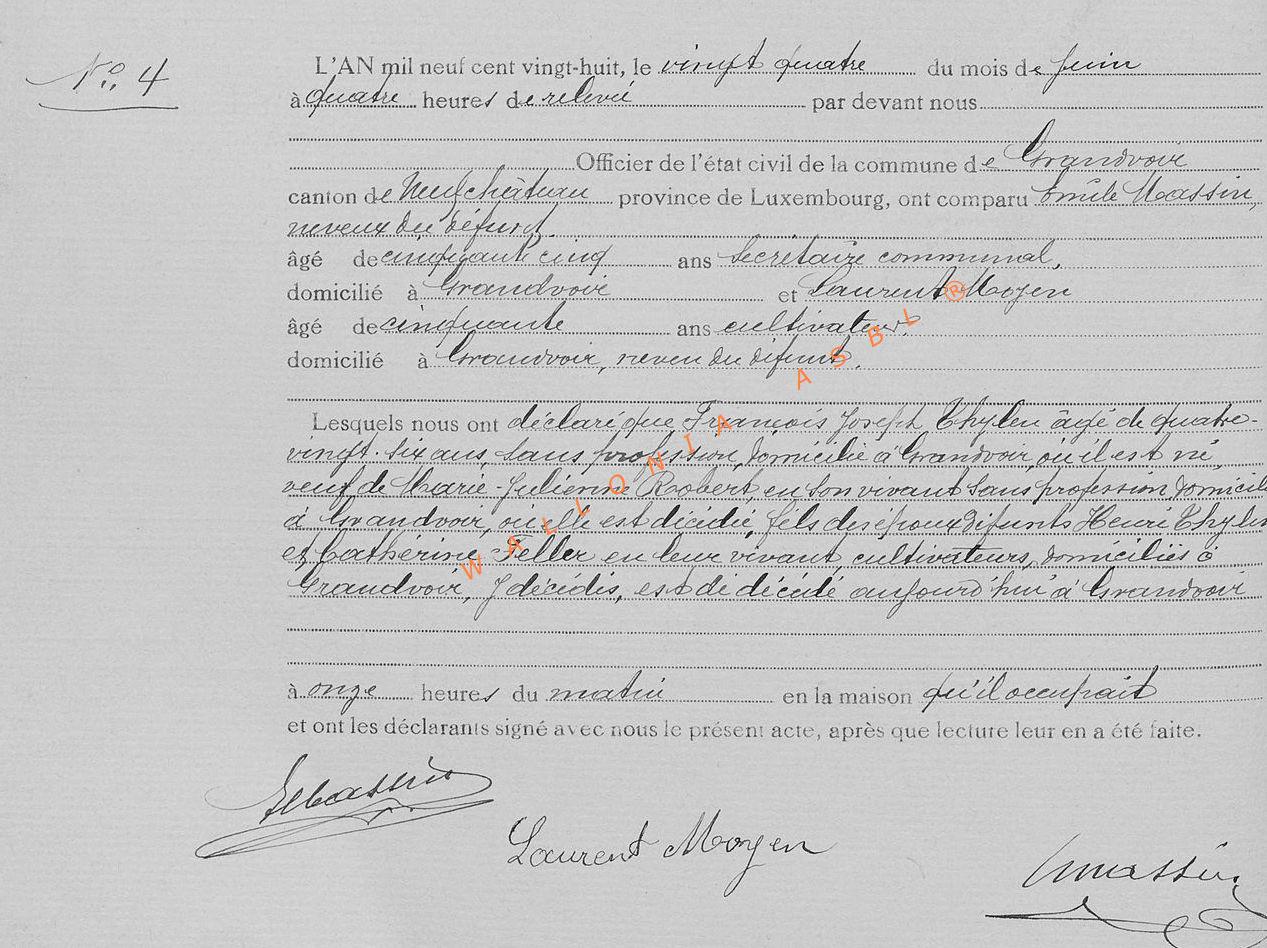 N° 4
L'AN mil neuf cent vingt-huit, le vingt quatre du mois de juin
à quatre heures de relevé par devant nous
Officier de l'état civil de la commune de Grandvoir
canton de Neufchâteau province de Luxembourg, ont comparu Emile Massin,
neveux du défunt.
âgé de cinquante cinq ans Secrétaire communal,
domicilié à Grandvoir et Laurent Moyen
âgé de cinquante ans cultivateur,
domicilié à Grandvoir, neveu du défunt.
Lesquels nous ont déclaré que François Joseph Thylen âgé de quatre-
vingt-six ans, sans profession, domicilié à Grandvoir, où il est né,
veuf de Marie-Julienne Robert, en son vivant sans profession, domicili
à Grandvoir, où elle est décédée, fils des époux défunts Henri Thylen
et Catherine Feller en leur vivant cultivateurs, domiciliés à
Grandvoir, y décédés, est dé décédé aujourd'hui à Grandvoir
à onze heures du matin en la maison qu'il occupait
et ont les déclarants signé avec nous le présent acte, après que lecture leur en a été faite.
Laurent Moyen
WALLONIA ASBL ®